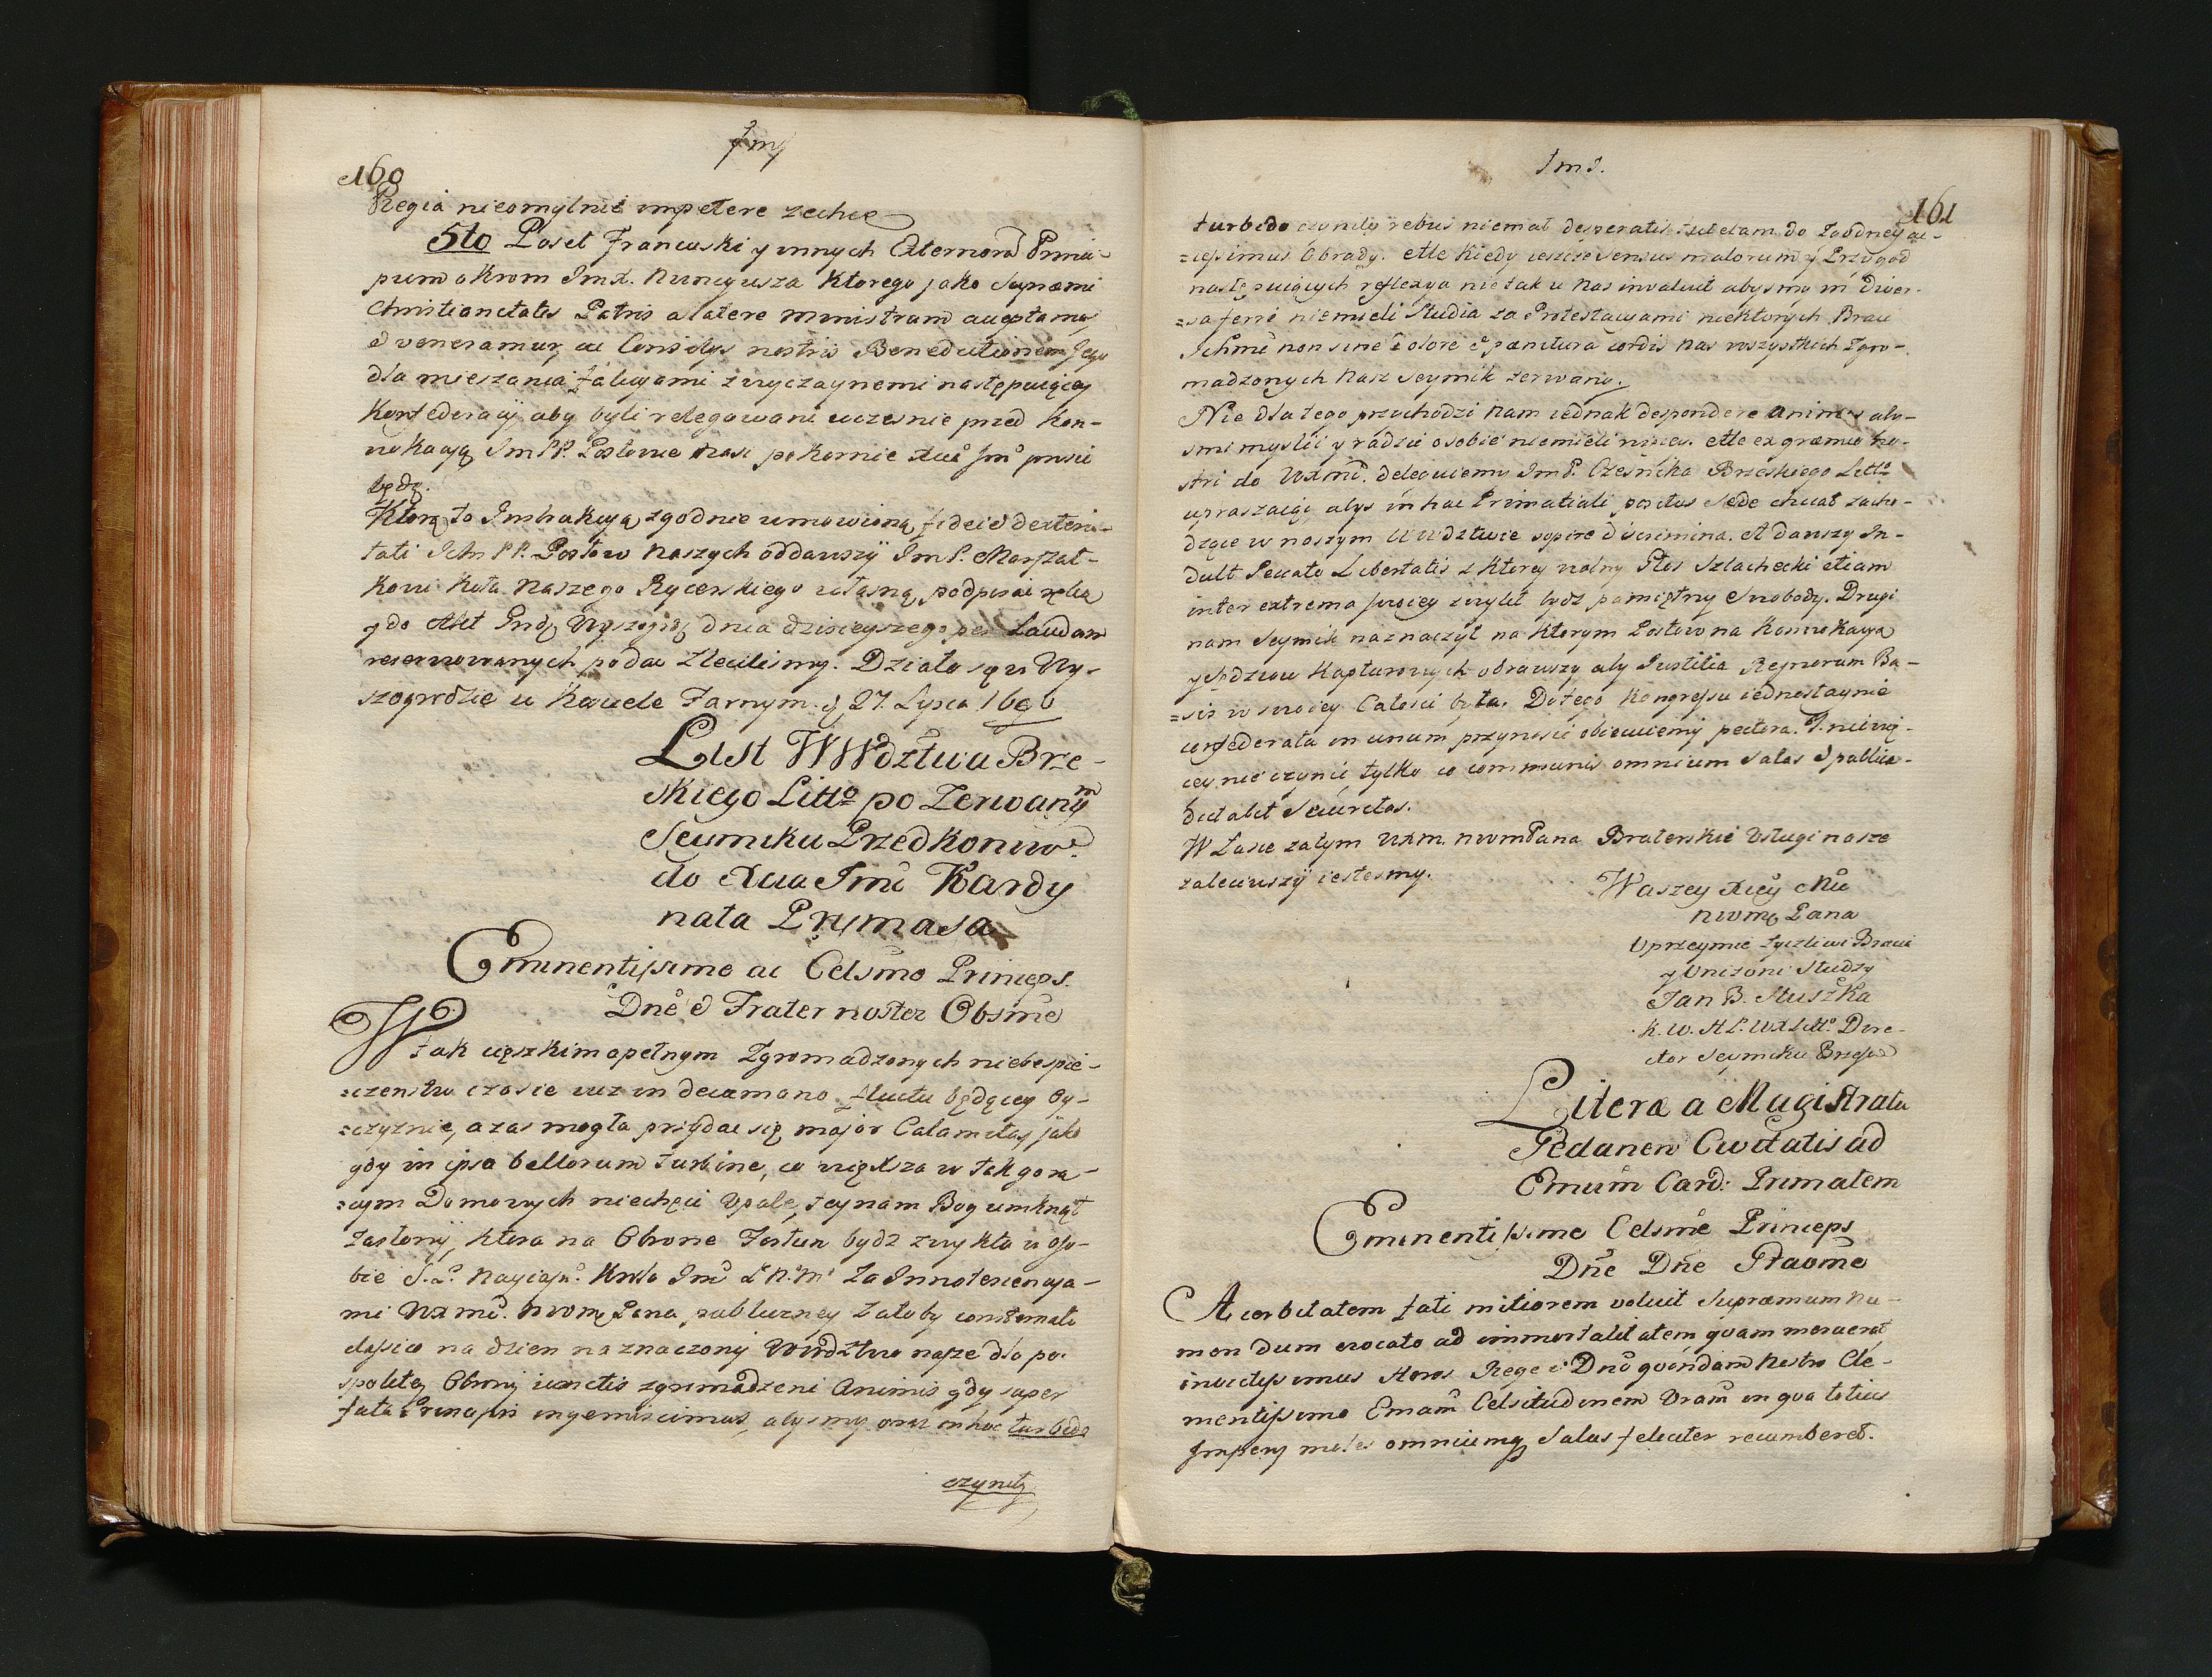 160
Regia nieomylnie impetere zechce
5to Poseł Francuski y innych Externorũ Princi-
pum okrom Jmx. Nuncyusza Ktorego jako Supremi
Christianitatis Patris a latere Ministrum acceptamus
& veneramur, ac Consilys nostris Benedictionem Jego
dla mieszania fakcyami zwyczaynemi następuiącey
Konfederacyi, aby byli relegowani wczesnie przed Kon-
wokacyą Jm PP. Posłowie nasi pokornie Xcia Jmci prosic
będą.
Ktorą to Instrukcyą zgodnie umowioną fidei & dexteri-
tati Ich PP. Posłow naszych oddawszy Jm P. Marszał-
kowi Koła naszego Rycerskiego własną podpisac ręką
y do Akt Grodz. Wyszogrodz. dnia dzisieyszego per Laudum
reserwowanych podac zlecilismy. Działo się w Wy-
szogrodzie w Kościele Farnym. d. 27. Lypca 1696
List WWdztwa Brze-
skiego Litto po Zerwanym
Seymiku Przedkonwo.
do Xcia Jmci Kardy
nała Prymasa
Eminentissime ac Celsmo Princeps.
Dne & Frater noster Obsme
W tak cięszkim a pełnym Zgromadzonych niebespie-
czenstw czasie iuz in decumano fluctu będącey Oy-
czyznie, azas mogła przydac się major Calamitas jako
gdy in ipso bellorum turbine, co większa w tak gora-
cym Domowych niechęci Upale, tey nam Bog umknął
Zasłony, ktora na Obrone Fortun bydz zwykła w oso-
bie S.P. Nayiaśn. Krola Jmci P.N.M. Za Innotescencya-
mi WXmci. nwmę Pana, sub lurzney Załoby consternati
classico na dzien naznaczony Wwdztwo nasze dla po-
spolitey Obrony iunctis zgromadzeni Animis gdy super
fata Principis ingemiscimus, alysmy oraz in hoc turbido
czynily
161
turbido czynily rebus niemal desperatis tutelam do Zgodney ac-
cessimus Obrady. Ale Kiedy ieszcze sensus malorum y Przygod
następuiących reflexya nie tak u nas invaluit abysmy in diver-
sa ferri niemieli Studia za Protestacyami niektorych Braci
Ichmci non sine dolore & pænitura cordis nas wszystkich Zgro-
madzonych nasz Seymik zerwany.
Nie dlatego przychodzi nam iednak despondere animos aby-
smi myslic y radzic o sobie niemieli mieć. Ale ex gremio no-
stri do WXmci. deleguiemy Jm P. Czesnika Brzeskiego Litto
upraszaiąc abys in hac Primatiali positus Sede chciał zacho-
dzące w naszym Wwdztwie sopire discrimina. A dawszy In-
dult Peccato Libertatis z ktorey wolny Głos Szlachecki etiam
inter extrema swoiey zwykł bydz pamiętny Swobody. Drugi
nam Seymik naznaczył na ktorym Posłow na Konwokacya
y Sędziow Kapturowych obrawszy aby Justitia Regnorum Ba-
sis w swoiey Całosci była. Do tego Kongressu iednostaynie
confederata in unum przyniesc obiecuiemy pectora. I niewię-
cey nie czynic, tylko co communis omnium Salus & publica-
dictabit Securitas.
W Łasce zatym WXm. nwmPana Braterskie Usługi nasze
zaleciwszy iestesmy.
Waszey Xcey Mci
nwmę Pana
Uprzeymie zyczliwi Bracia
y Unizoni Słudzy
Jan B. Słuszka
K. W. HP. WXLitto. Dire-
ctor Seymiku Brzesko
Literæ a Magistratu
Gedanen Civitatis ad
Emum Card: Primatem
Eminentissime Celsme Princeps
Dne Dne Graome
Acerbitatem fati mitiorem voluit Supremum Nu-
men dum evocato ad immortalitatem quam meruerat
invictissimus Heros Rege & Dno quondam nostro Cle-
mentissimo Emam Celsitudinem Vram in qua totius
Impery moles omniumq Salus feliciter recumberet.